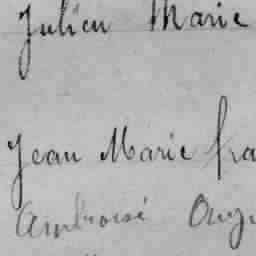 Julien Marie
Jean Marie fra
Ambroise